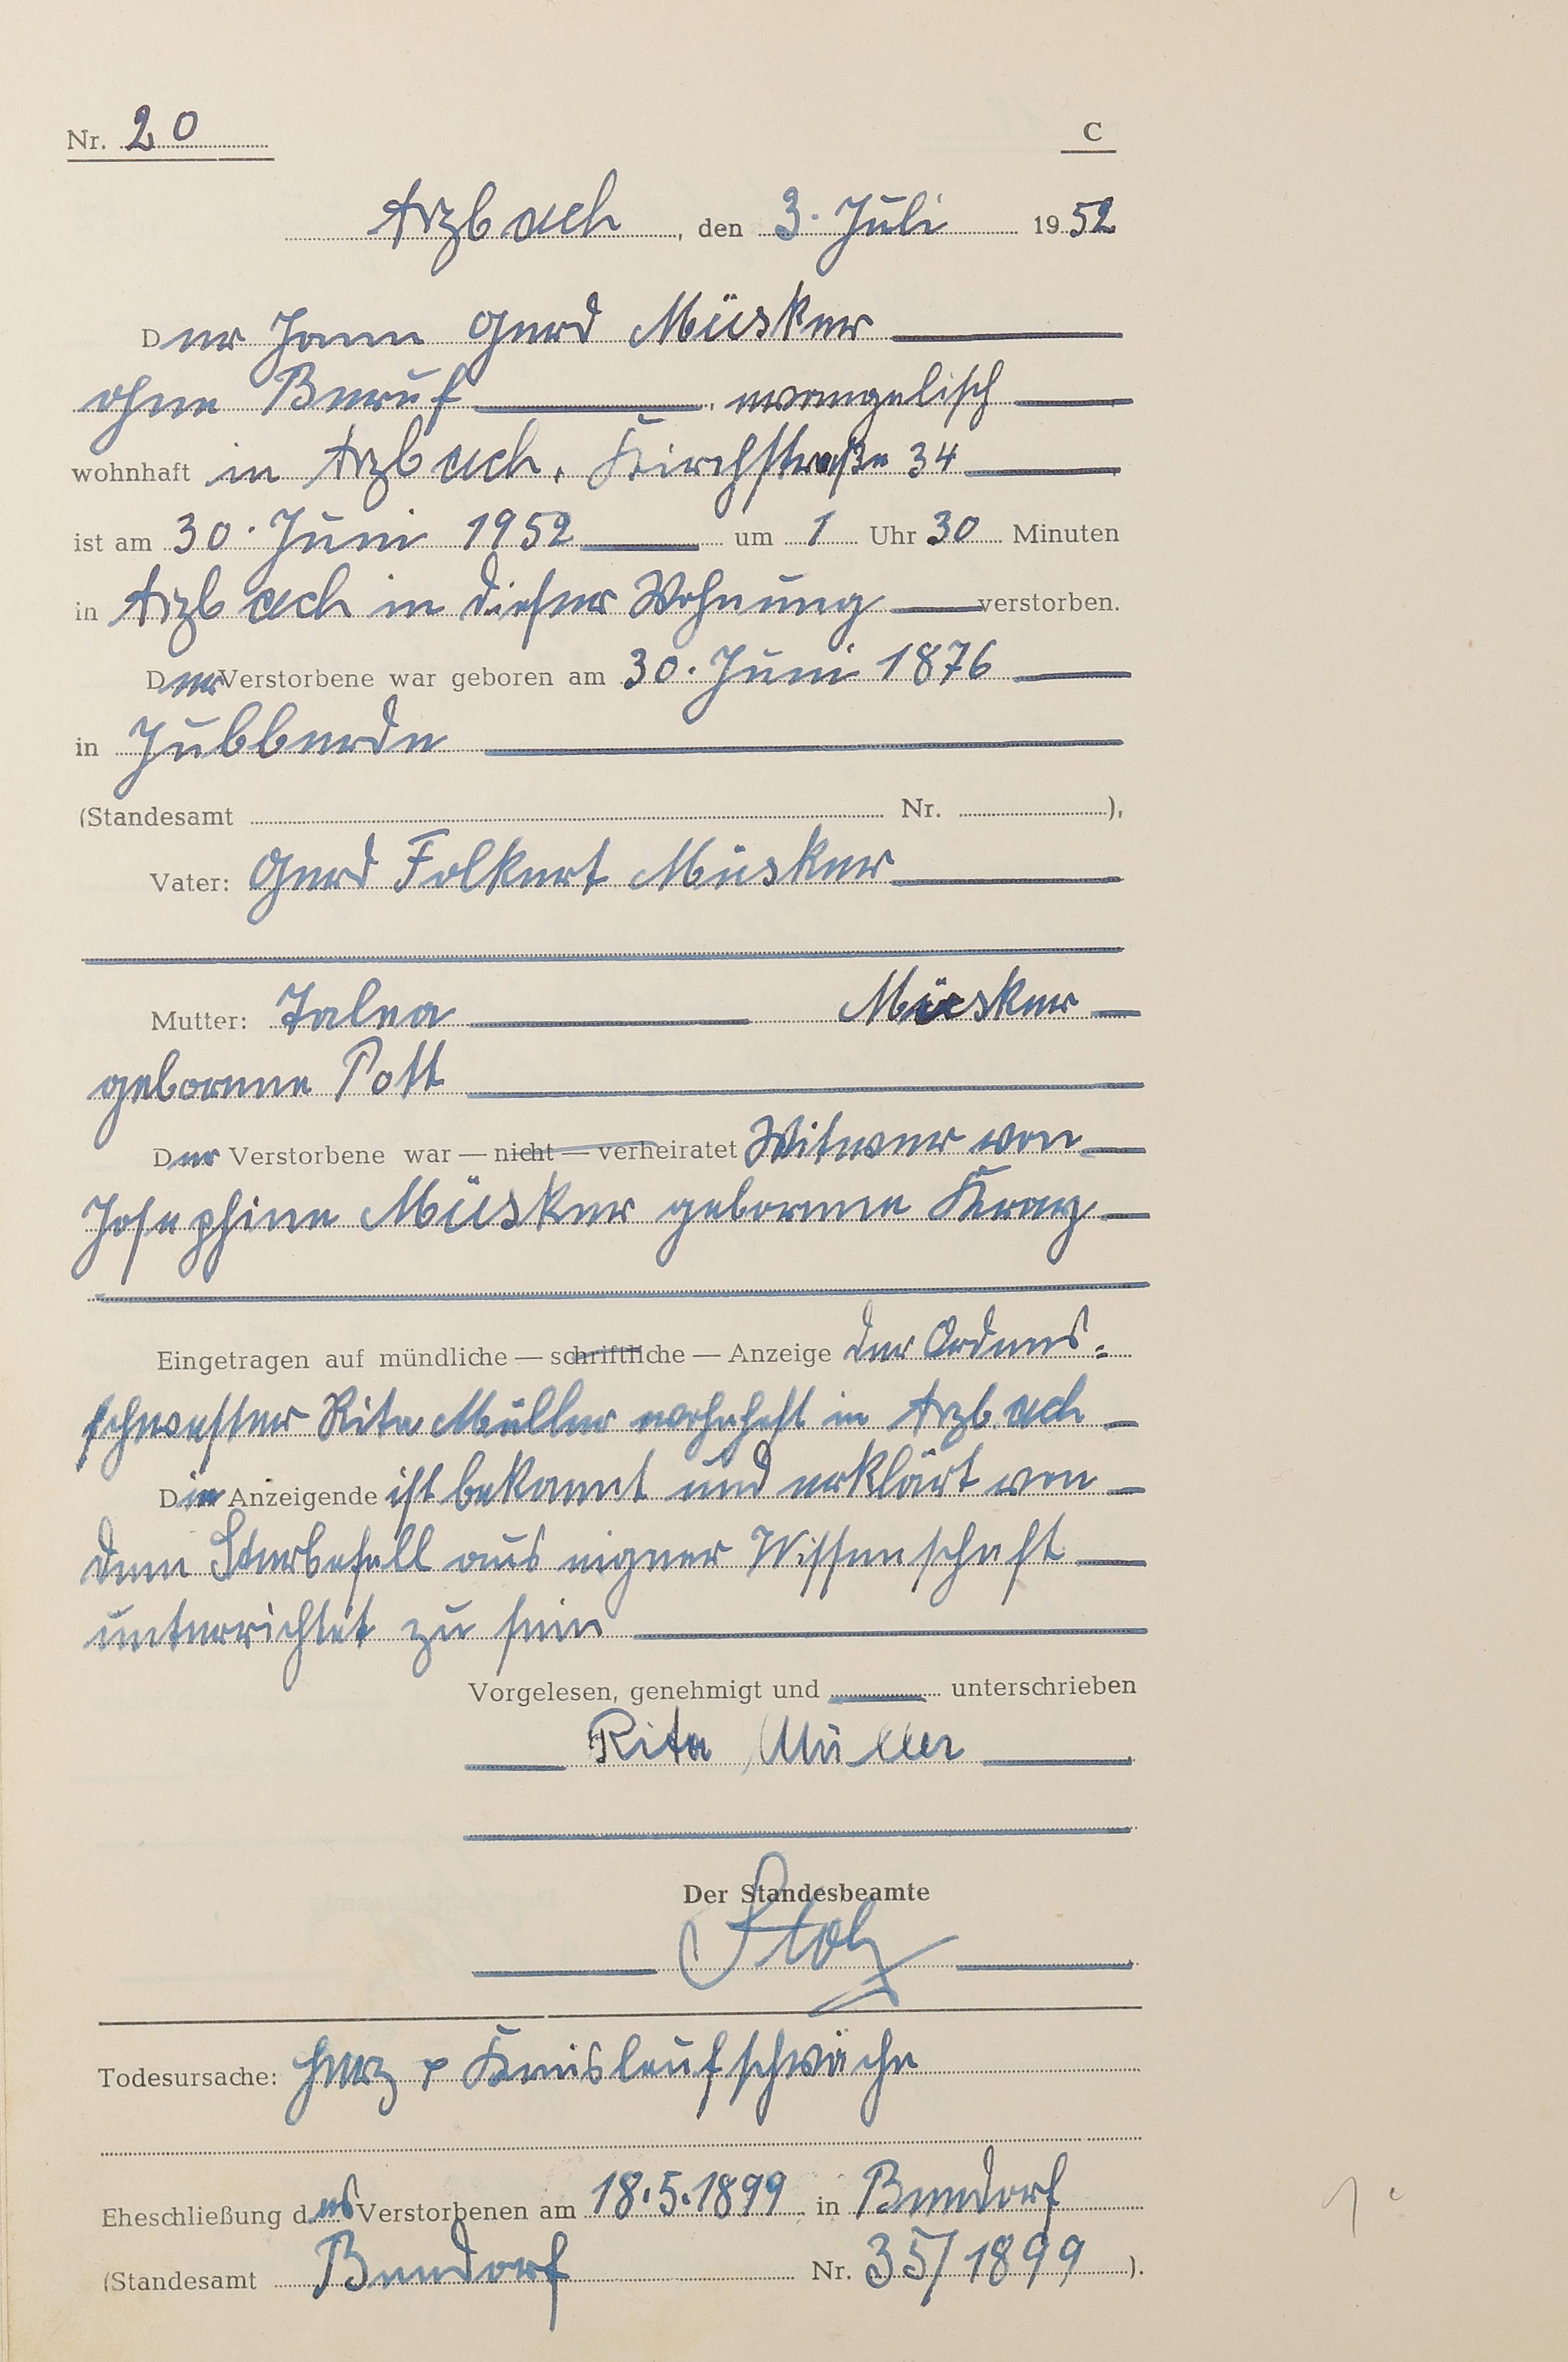 Nr. 20
C
Arzbach, den 3. Juli 1952
Der Jann Gerd Müsker
ohne Beruf, evangelisch
wohnhaft in Arzbach, Kirchstraße 34
ist am 30. Juni 1952 um 1 Uhr 30 Minuten
in Arzbach in dieser Wohnung verstorben.
Der Verstorbene war geboren am 30. Juni 1876
in Jübberde
(Standesamt Nr. ),
Vater: Gerd Folkert Müsker
Mutter: Talea Müsker
geborene Post
Der Verstorbene war — nicht — verheiratet Witwer von
Josephine Müsker geborene
Eingetragen auf mündliche — schriftliche — Anzeige der Ordens=
schwester Rita Müller wohnhaft in Arzbach
Die Anzeigende ist bekannt und erklärt von
dem Sterbefall aus eigner Wissenschaft
unterrichtet zu sein
Vorgelesen, genehmigt und unterschrieben
Rita Müller
Der Standesbeamte
Stolz
Todesursache: Herz + Kreislaufschwäche
Eheschließung des Verstorbenen am 18.5.1899 in Bendorf
(Standesamt Bendorf Nr. 35/1899).